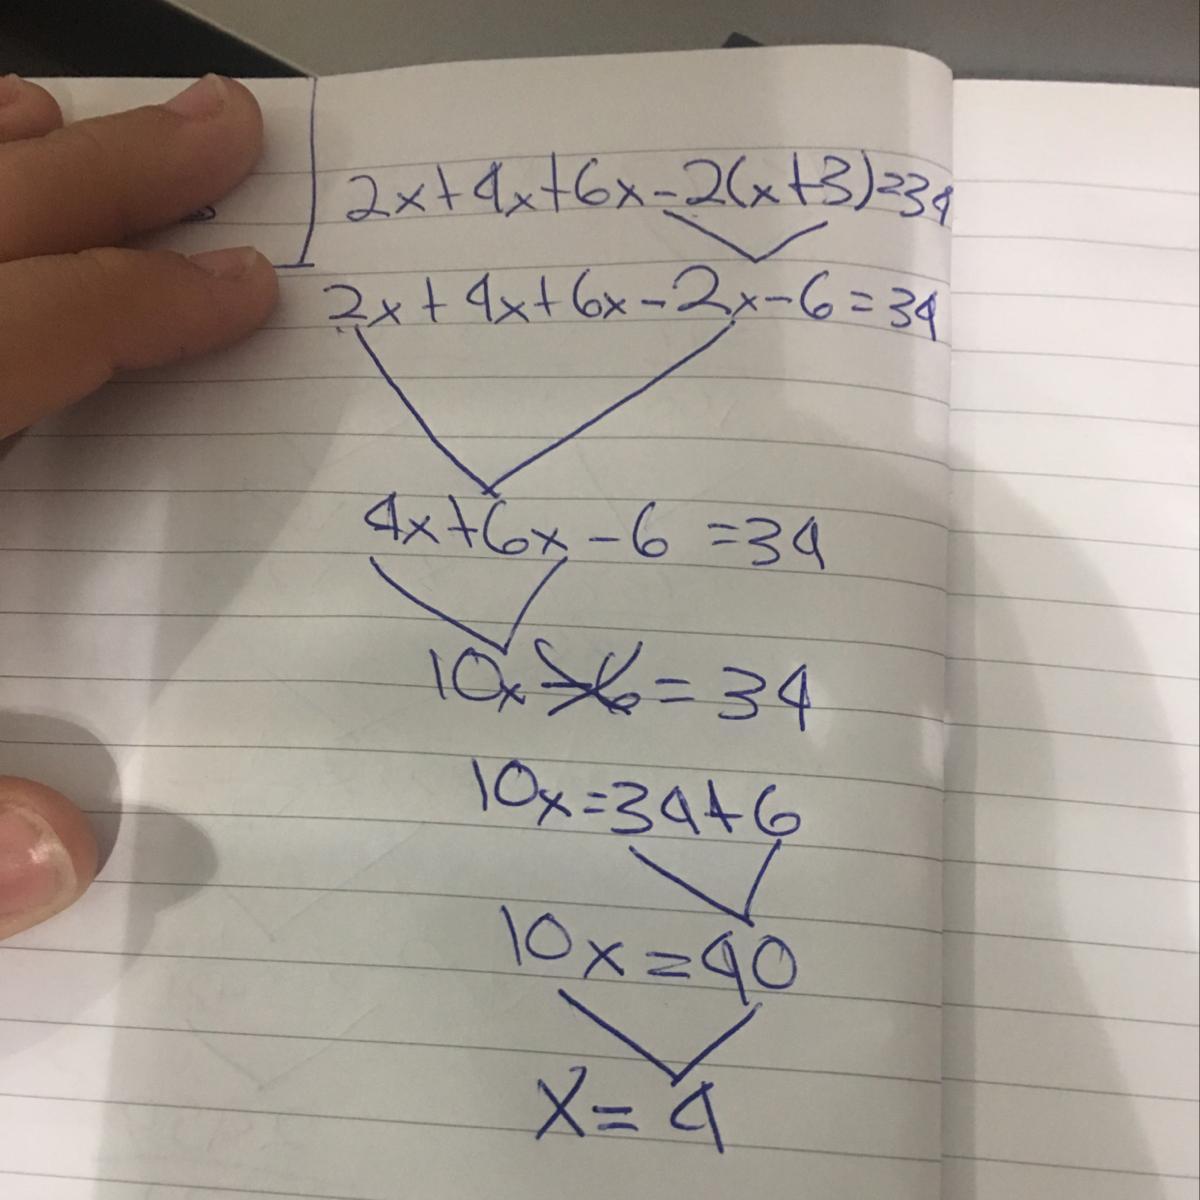 2x+4x+6x-2(x+3)=34
2x+4x+6x-2x-6=34
4x+6x-6=34
10x-6=34
10x=34+6
10x=40
x=4